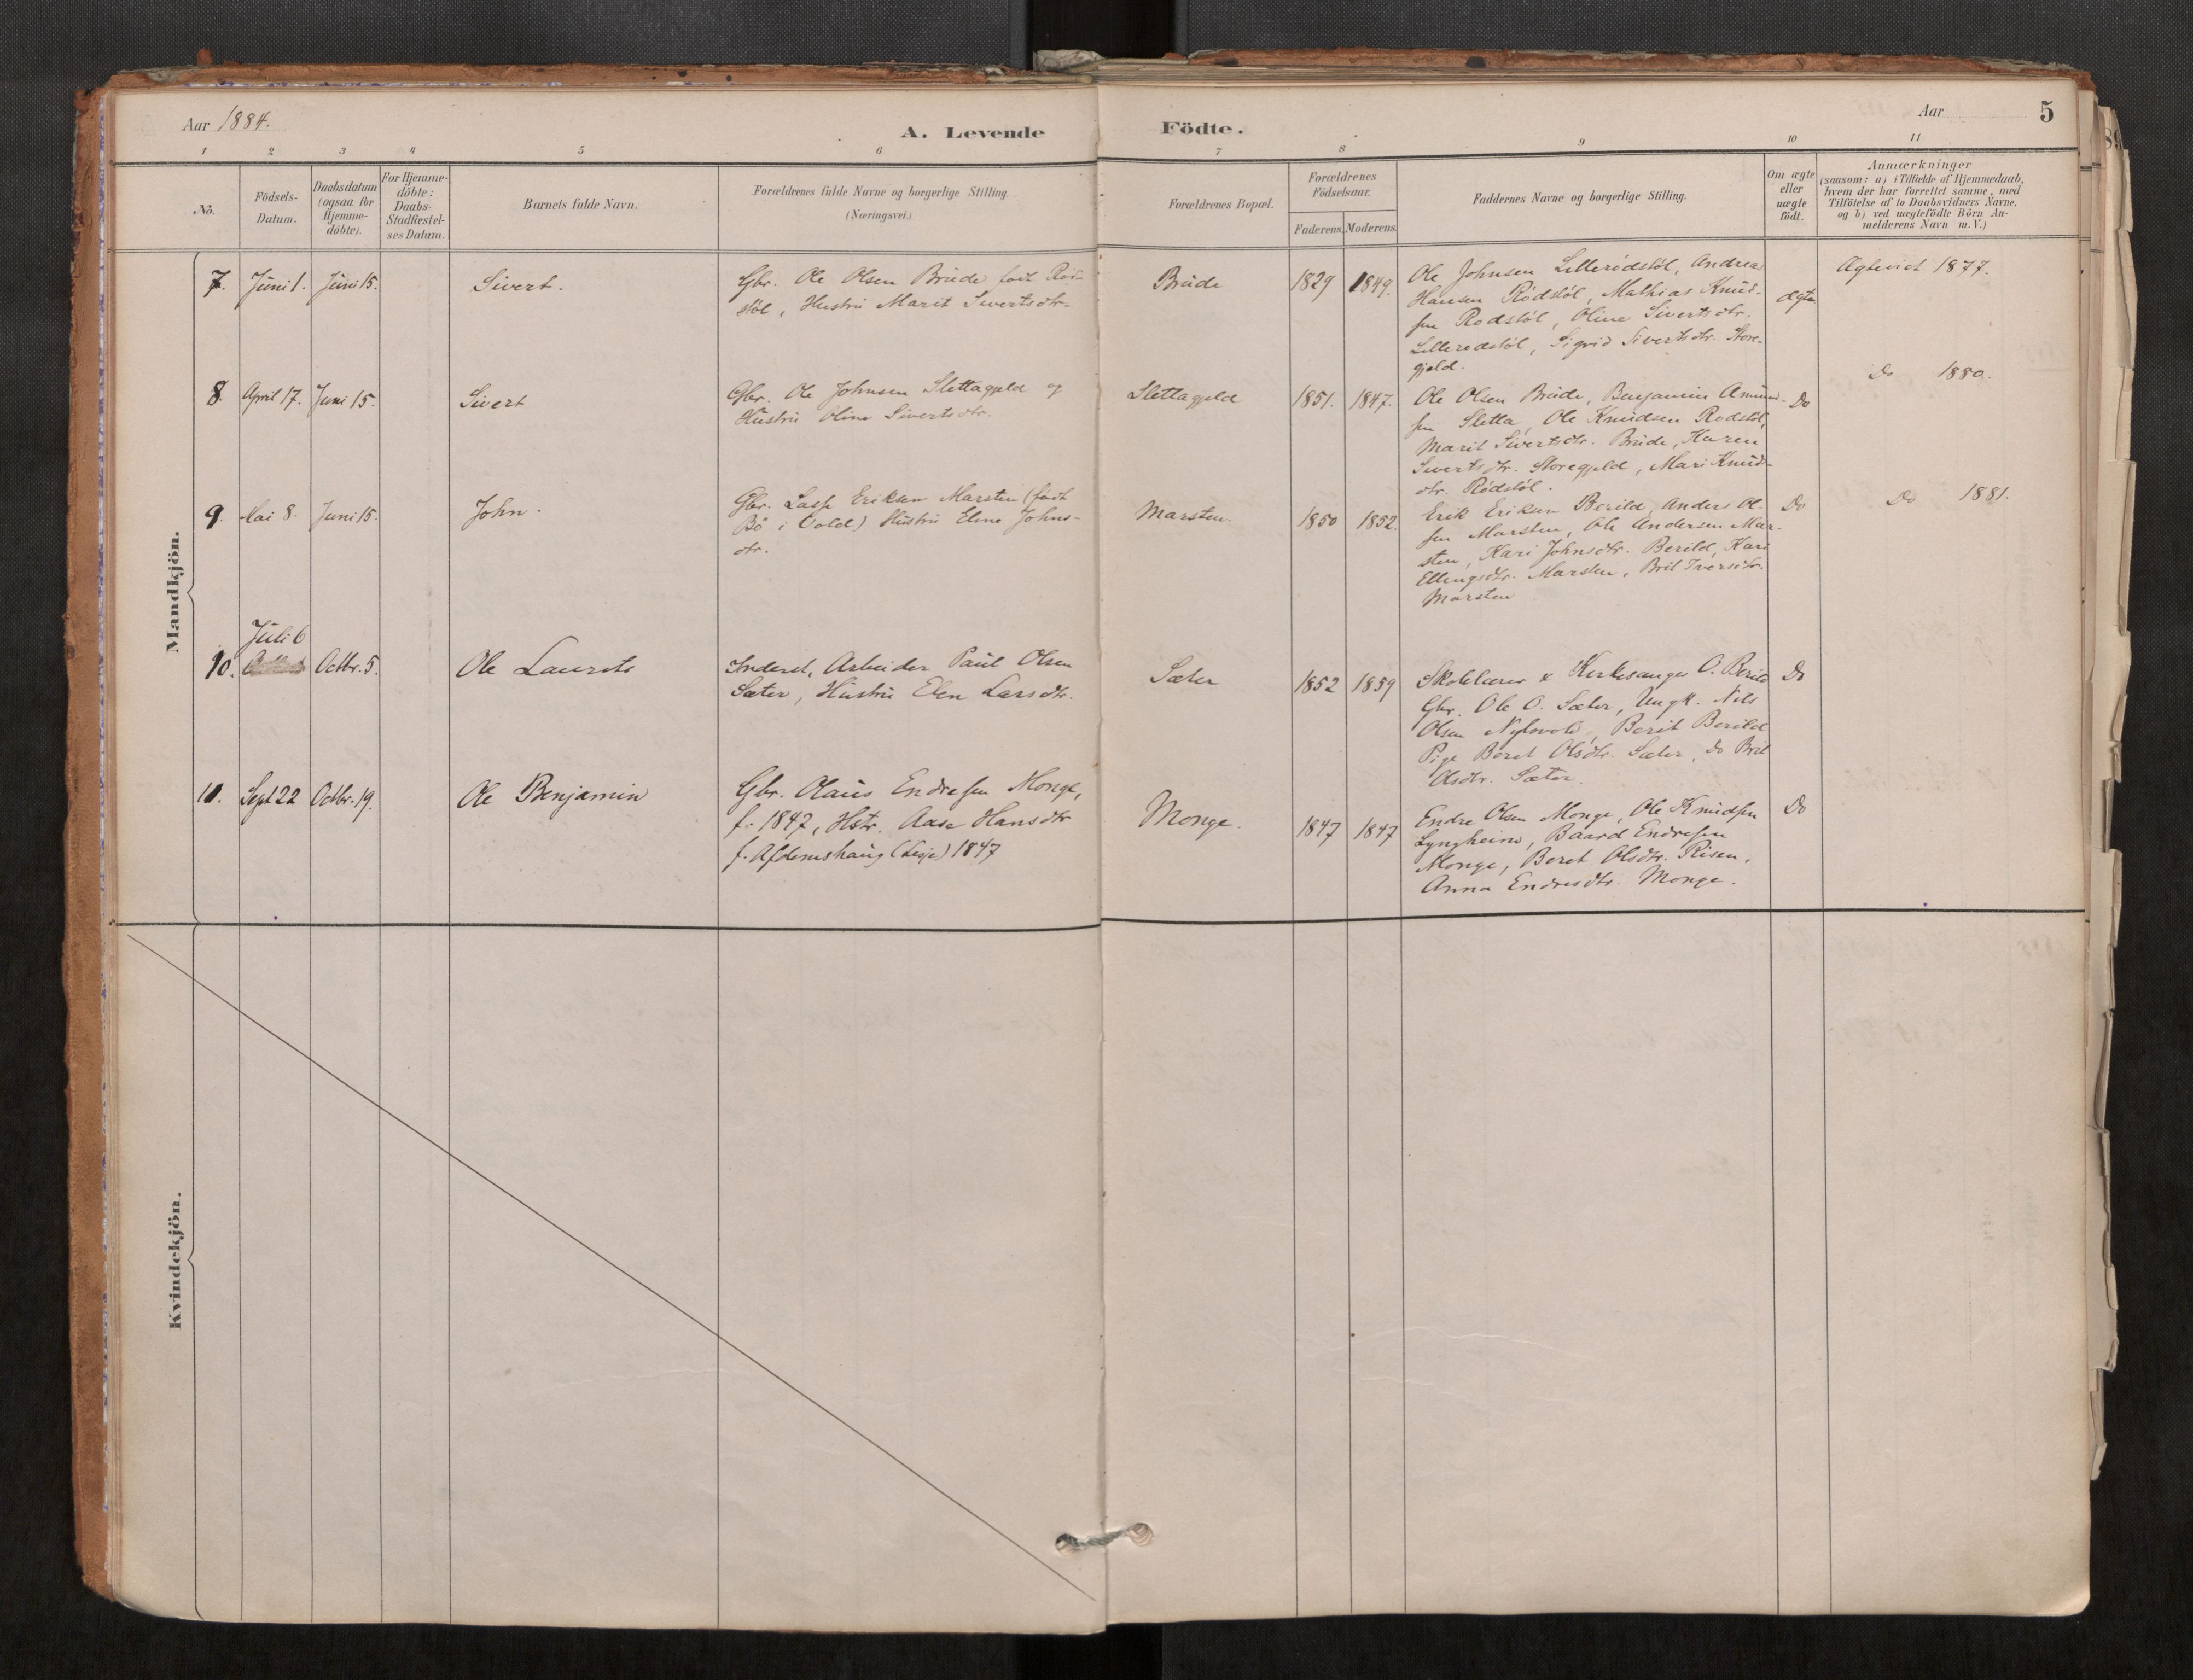 Aar 1884.
A. Levende Födte.
Aar
5
1 2 3 4 5 6 7 8 9 10 11
No.
Födsels-
Datum.
Daabsdatum
(ogsaa for
Hjemme-
döbte).
For Hjemme-
döbte:
Daabs-
Stadfæstel-
ses Datum.
Barnets fulde Navn.
Forældrenes fulde Navne og borgerlige Stilling
(Næringsvei.)
Forældrenes Bopæl.
Forældrenes
Födselsaar.
Faderens. Moderens.
Faddernes Navne og borgerlige Stilling.
Om ægte
eller
uægte
födt.
Anmærkninger
(saasom: a) i Tilfælde af Hjemmedaab,
hvem der har forrettet samme, med
Tilföielse af to Daabsvidners Navne,
og b) ved uægtefödte Börn An-
melderens Navn m. V.)
Mandkjön.
7. Juni 1. Juni 15. Sivert.
Gbr. Ole Olsen Brude født Rød-
støl, Hustru Marit Sivertsdtr.
Brude 1829 1849.
Ole Johnsen Lillerødstøl, Andreas
Hansen Rødstøl, Mathias Knud-
sen Rødstøl, Oline Sivertsdtr.
Lillerødstøl, Sigrid Sivertsdtr. Store-
gjeld.
ægte
Ægteviet 1877.
8. April 17. Juni 15. Sivert
Gbr. Ole Johnsen Slettagjeld og
Hustru Oline Sivertsdtr.
Slettagjeld 1851. 1847.
Ole Olsen Brude, Benjamin Amund-
sen Sletta, Ole Knudsen Rødstøl,
Marit Sivertsdtr. Brude, Karen
Sivertsdtr. Storegjeld, Mari Knuds-
dtr. Rødstøl.
Do
Do 1880.
9. Mai 8. Juni 15. John.
Gbr. Lasse Eriksen Marsten (født
Bö i Vold) Hustru Elene Johns-
dtr.
Marsten. 1850 1852.
Erik Eriksen Berild, Anders Ol-
sen Marsten, Ole Andersen Mar-
sten, Kari Johnsdtr. Berild, Kari
Ellingsdtr. Marsten, Brit Iversdtr.
Marsten
Do
Do 1881.
10. Juli 6 Octbr. 5. Ole Laurits
Inderst, Arbeider Paul Olsen
Sæter, Hustru Elen Larsdtr.
Sæter 1852 1859
Skolelærer & Kirkesanger O. Berild
Gbr. Ole O. Sæter, Ungk. Nils
Olsen, Berit Berild
Pige Beret Olsdtr. Sæter, Do Brit
Olsdtr. Sæter.
Do
11. Sept 22 Octbr. 19. Ole Benjamin
Gbr. Olaus Endresen Monge,
f. 1847, Hstr. Aase Hansdtr
f. Afdemshaug (Lesje) 1847
Monge. 1847 1847
Endre Olsen Monge, Ole Knudsen
Lyngheim, Baard Endresen
Monge, Beret Olsdtr. Risen,
Anna Endresdtr. Monge.
Do
Kvindekjön.